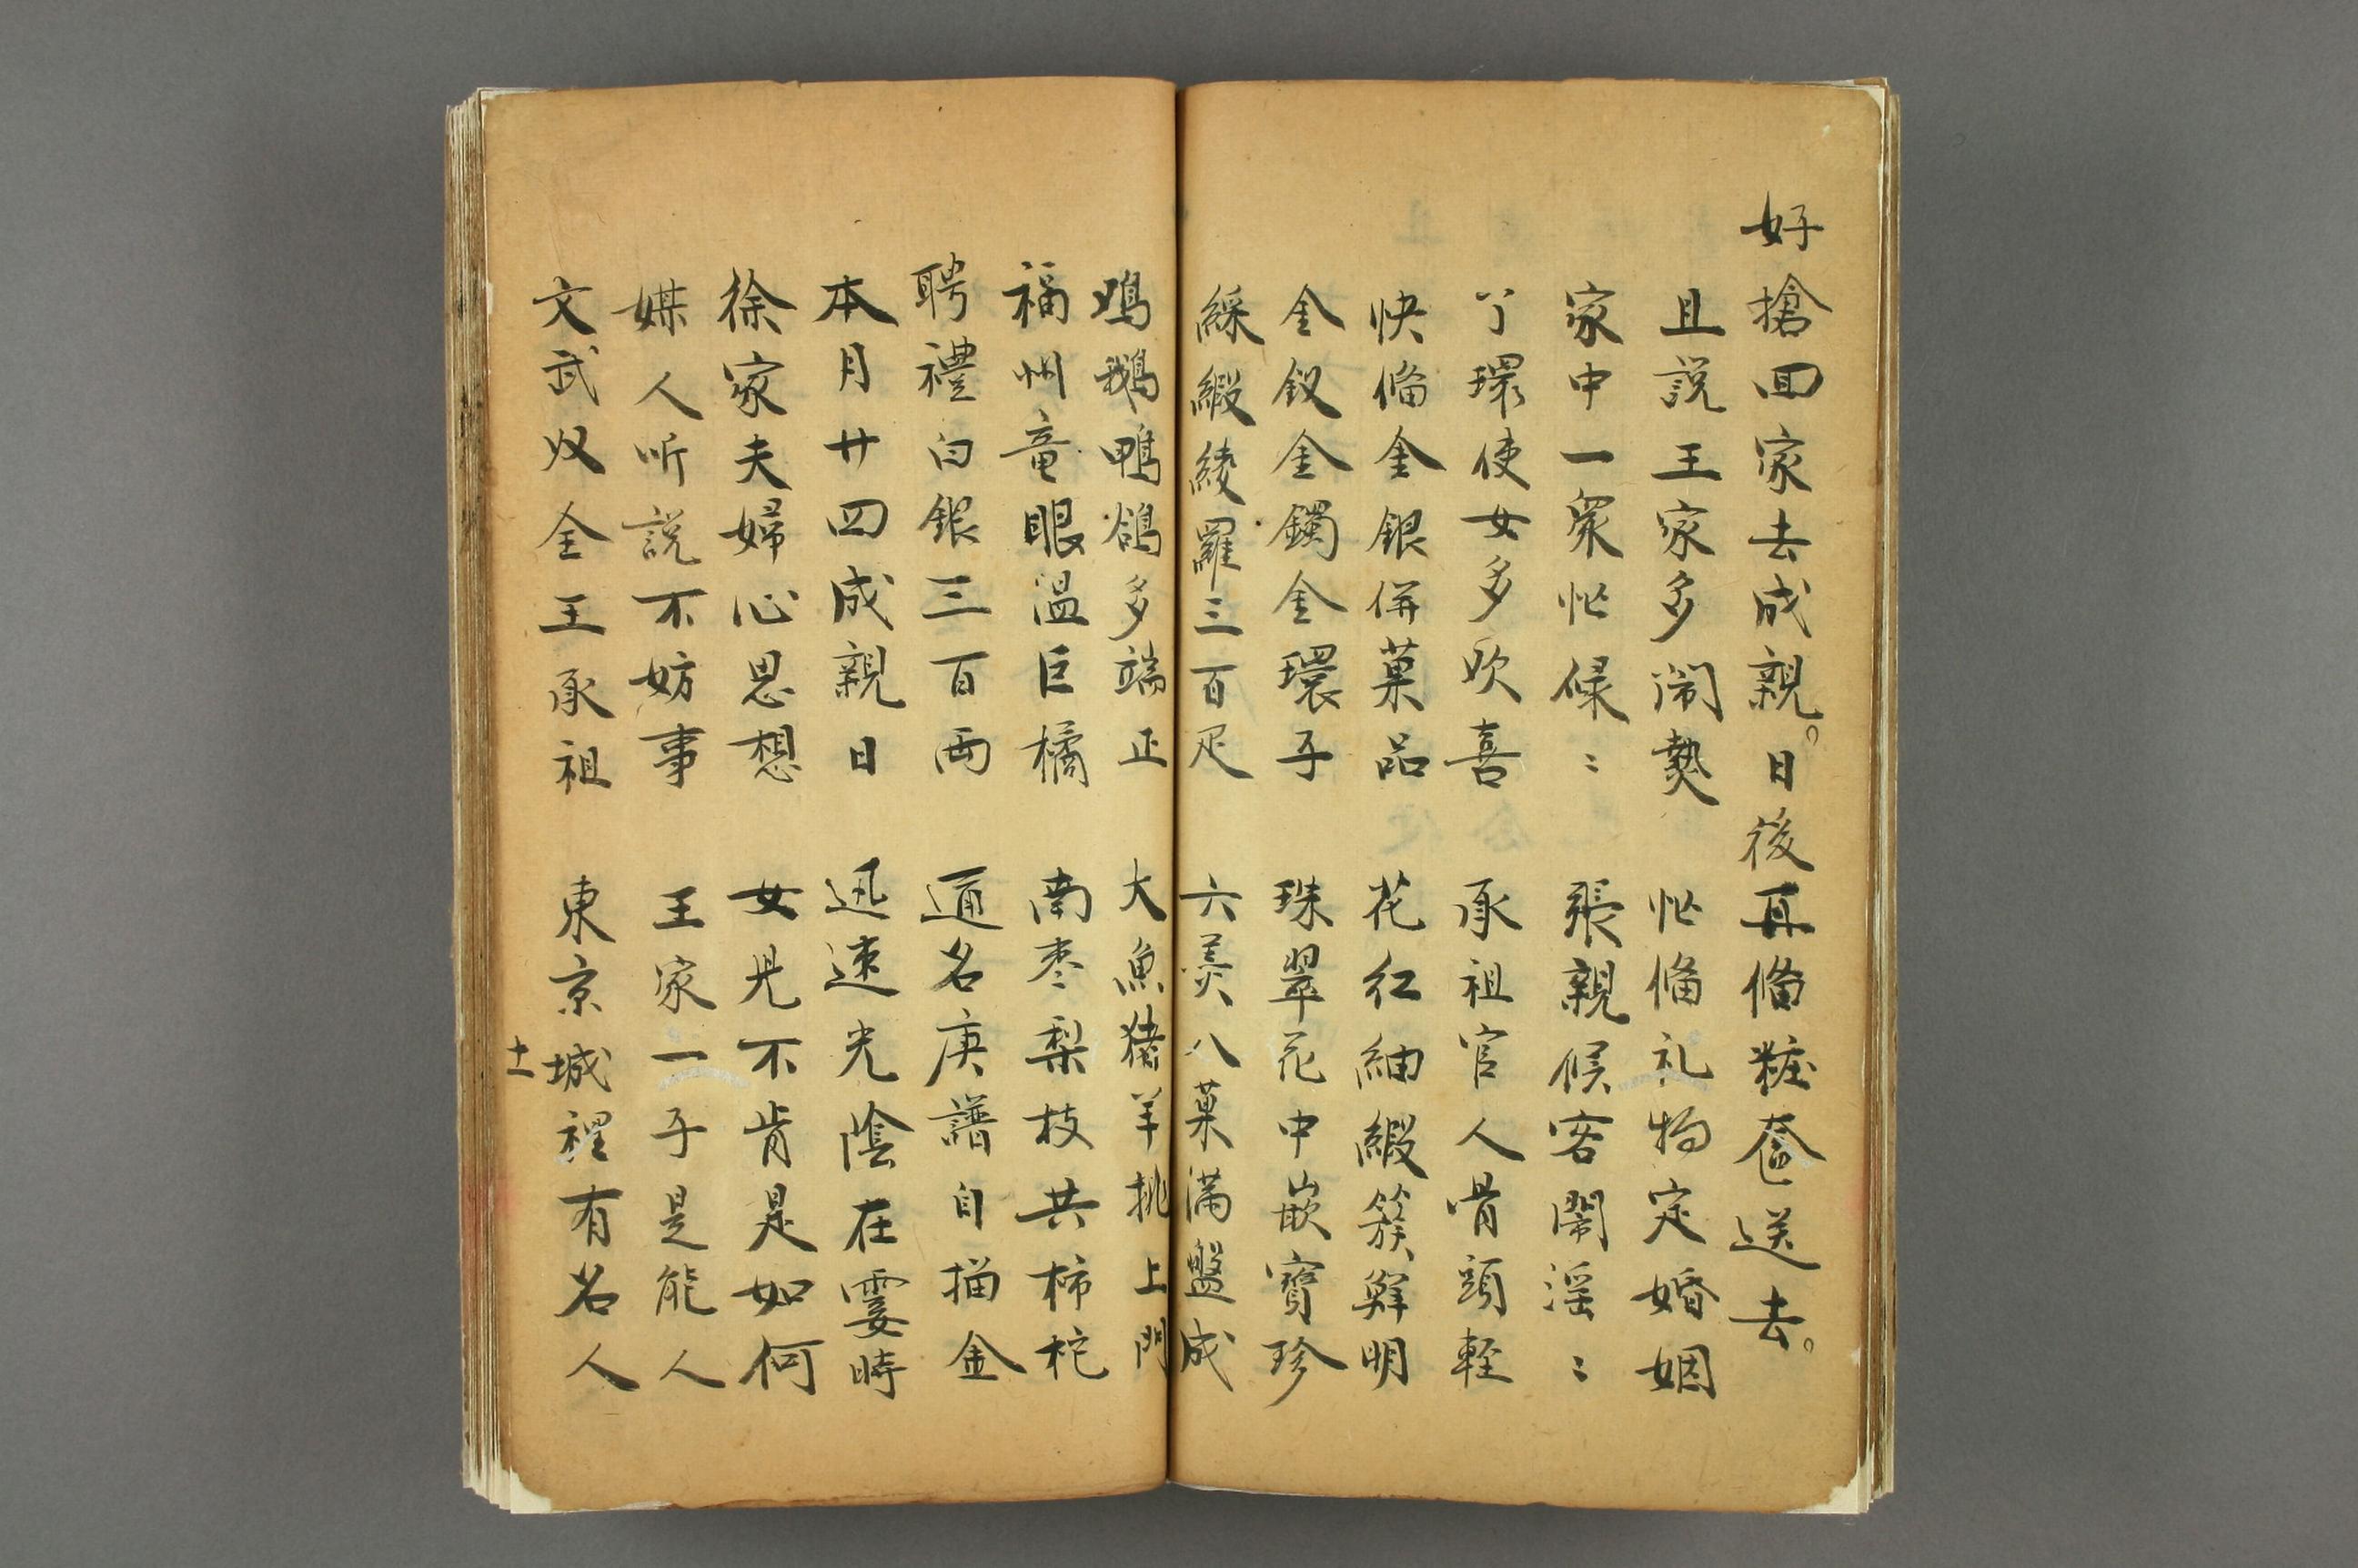 好搶回家去成親。日後再俻粧奩送去。
且説王家多閙熱　忙俻礼物定婚姻
家中一衆忙碌〻　張親候客鬧滛〻
丫環使女多欢喜　承祖官人骨頭輕
快俻金銀併菓品　花紅紬緞簇鮮明
金釵金鐲金環子　珠翠花中嵌寳珍
綵緞綾羅三百疋　六美八菓满盤成
鳮鵝鴨鴿多端正　大魚猪羊挑上門
福州竜眼温巨橘　南枣梨枝共柿柁
聘禮白銀三百両　通名庚譜自描金
本月廿四成親日　迅速光陰在霎時
徐家夫婦心思想　女児不肯是如何
媒人听説不妨事　王家一子是能人
文武双全王承祖　東京城裡有名人
十一